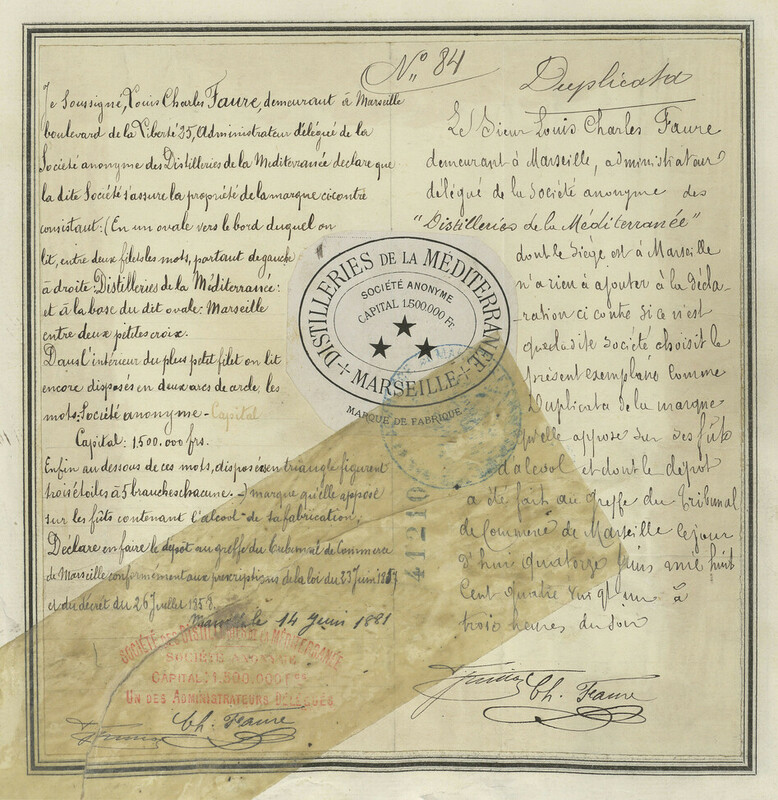 Nº 84
Je Soussigné, Louis Charles Faure, demeurant à Marseille
boulevard de la Liberté 35, Administrateur délégué de la
Société anonyme des Distilleries de la Mediterranée declare que
la dite Société s'assure la propriété de la marque cicontre
consistant: (En un ovale vers le bord duquel on
lit, entre deux filets les mots, partant de gauche
à droite: Distilleries de la Méditerranée:
et à la base du dit ovale: Marseille
entre deux petites croix.
Dans l'intérieur du plus petit filet on lit
encore disposés en deux arcs de cercle, les
mots: Société anonyme - Capital
Capital: 1500.000 frs.
Enfin au dessous de ces mots, disposées en triangle figurent
trois étoiles à 5 branches chacune.-) marque qu'elle appose
sur les fûts contenant l'alcool de sa fabrication;
Déclare en faire le dépôt au greffe du Tribunal de Commerce
de Marseille conformément aux prescriptions de la loi du 23 Juin 1857
et du décret du 26 Juillet 1858.
Marseille le 14 Juin 1881
SOCIÉTÉ DES DISTILLERIES DE LA MÉDITERRANÉE
SOCIÉTÉ ANONYME
CAPITAL: 1,500,000 Frs
UN DES ADMINISTRATEURS DÉLÉGUÉS
Ch. Faure
DISTILLERIES DE LA MÉDITERRANÉE
SOCIÉTÉ ANONYME
CAPITAL 1.500.000 Fr
MARSEILLE
MARQUE DE FABRIQUE
41210
Duplicata
Le Sieur Louis Charles Faure
demeurant à Marseille, administrateur
délégué de la Société anonyme des
"Distilleries de la Méditerranée"
dont le Siège est à Marseille
n'a rien à ajouter à la décla-
ration ci contre si ce n'est
que la dite Société choisit le
présent exemplaire comme
Duplicata de la marque
qu'elle appose sur ses fûts
d'alcool et dont le dépôt
a été fait au greffe du Tribunal
de Commerce de Marseille ce jour
d'hui quatorze Juin mil huit
Cent quatre vingt un à
trois heures du soir
Ch. Faure